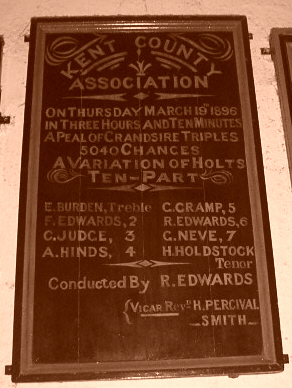 KENT COUNTY
ASSOCIATION
ON THURSDAY MARCH 19TH 1896
IN THREE HOURS AND TEN MINUTES
A PEAL OF GRANDSIRE TRIPLES
5040 CHANCES
A VARIATION OF HOLTS
TEN-PART
E. BURDEN, Treble C. CRAMP, 5
F. EDWARDS, 2 R. EDWARDS, 6
C. JUDGE, 3 G. NEVE, 7
A. HINDS, 4 H. HOLDSTOCK
Tenor
Conducted By R. EDWARDS
{VICAR REVD H. PERCIVAL
SMITH